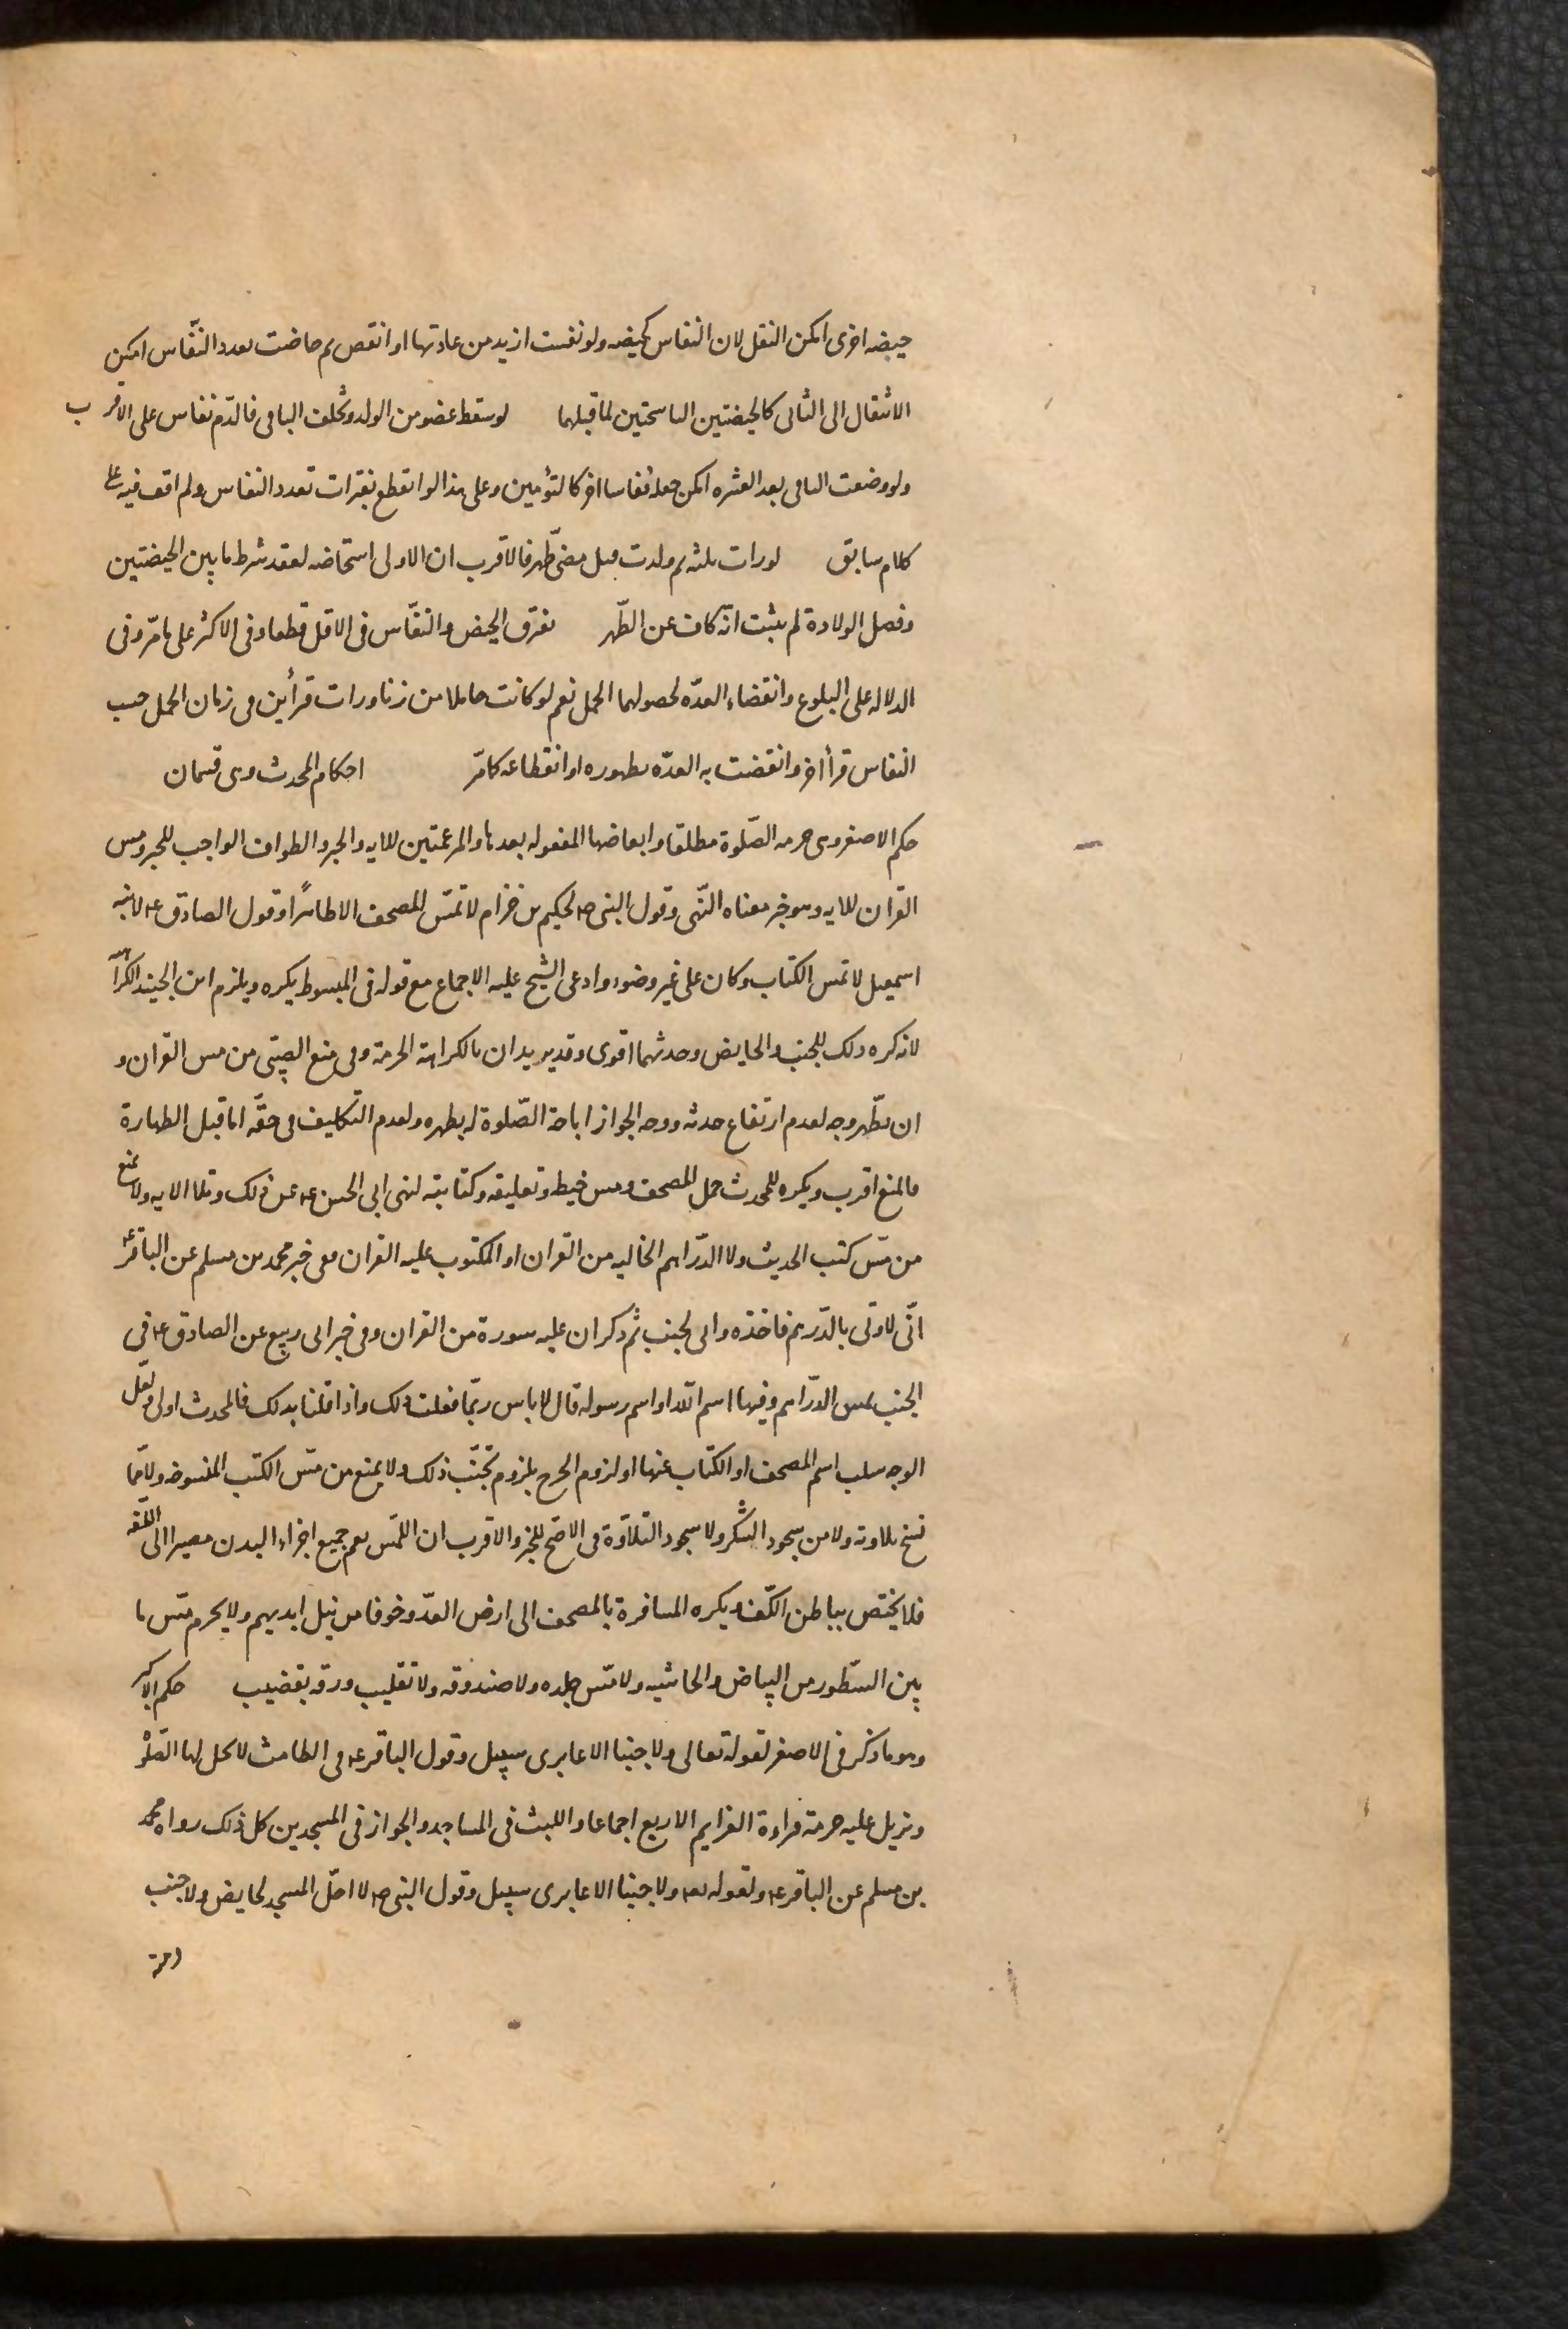 حيضه اخرى امكن النقل لان النفاس كحيضه ولو نفست ازيد من عادتها او انقص ثم حاضت بعدد النفّاس امكن
الانتقال الى الثانى كالحيضتين الناسختين لما قبلهما لو سقط عضو من الولد وتخلف الباقى فالدّم نفاس على الاقرب
ولو وضعت الباقى بعد العشره امكن جعله نفاسا اخر كالتؤمين وعلى هذا لو انقطع بفترات تعدد النفاس ولم اقف فيه على
كلام سابق لو رات ثلثه ثم ولدت قبل مضى طهر فالاقرب ان الاولى استحاضه لفقد شرط ما بين الحيضتين
وفصل الولادة لم يثبت انّه كاف عن الطّهر تفرق الحيض والنفّاس فى الاقل قطعا وفى الاكثر على ما مرّ وفى
الدلاله على البلوغ وانقضاء العدّه لحصولهما الحمل نعم لو كانت حاملا من زنا ورات قرأين فى زمان الحمل حسب
النفاس قرأ اخر وانقضت به العدّه بظهوره او انقطاعه كما مرّ احكام المحدث وهى قسمان
حكم الاصغر وهى حرمه الصّلوة مطلقا وابعاضها المفعوله بعدها والمرغمتين للايه والخبر والطواف الواجب للخبر ومس
القران للايه وهو خبر معناه النّهى وقول النبى ص لحكيم بن حزام لا تمسّ المصحف الا طاهرًا وقول الصادق ع لابنه
اسمعيل لا تمس الكتاب وكان على غير وضوء وادعى الشيخ عليه الاجماع مع قوله فى المبسوط يكره ويلزم ابن الجنيد الكراهه
لانه كره ذلك للجنب والحايض وحدثهما اقوى وقد يريدان بالكراهة الحرمة وفى منع الصبّى من مس القران و
ان تطّهر وجه لعدم ارتفاع حدثه ووجه الجواز اباحة الصّلوة له بطهره ولعدم التكليف فى حقّه اما قبل الطهارة
فالمنع اقرب ويكره للمحدث حمل المصحف ومس خيطه وتعليقه وكتابته لنهى ابى الحسن ع عن ذلك وتلا الايه ولا يمنع
من مسّ كتب الحديث ولا الدّراهم الخاليه من القران او المكتوب عليه القران ففى خبر محمد بن مسلم عن الباقر ع
انّى لاوتى بالدّرهم فاخذه وانى لجنب ثم ذكر ان عليه سورة من القران وفى خبر ابى ربيع عن الصادق ع فى
الجنب يمس الدّراهم وفيها اسم الله او اسم رسوله قال لا باس ربّما فعلت ذلك واذا قلنا بذلك فالمحدث اولى ولعلّ
الوجه سلب اسم المصحف او الكتاب عنها او لزوم الحرج بلزوم تجنّب ذلك ولا يمنع من مسّ الكتب المنسوخه ولا ممّا
نسخ تلاوته ولا من سجود الشكر ولا سجود التلاوة فى الاصّح للخبر والاقرب ان اللمّس يعم جميع اجزاء البدن مصيرا الى اللغه
فلا يختص بباطن الكّف ويكره المسافرة بالمصحف الى ارض العدّو خوفا من نيل ايديهم ولا يحرم مسّ ما
بين السّطور من البياض والحاشيه ولا مسّ جلده ولا صندوقه ولا تقليب ورقه بقضيب حكم الاكبر
وهو ما ذكر فى الاصغر لقوله تعالى ولا جنبا الا عابرى سبيل وقول الباقر ع فى الطامث لا تحل لها الصّلوة
ويزيل عليه حرمة قراءة العزايم الاربع اجماعا واللبث فى المساجد والجواز فى المسجدين كل ذلك رواه محمد
بن مسلم عن الباقر ع ولقوله تعه ولا جنبا الا عابرى سبيل وقول النبى ص لا احلّ المسجد لحايض ولا جنب